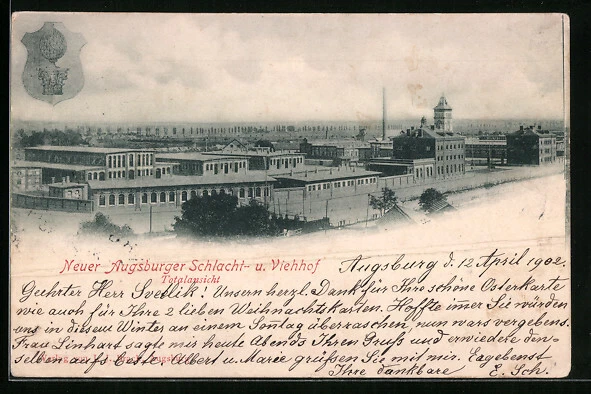 Neuer Augsburger Schlacht- u. Viehhof
Totalansicht
Augsburg d. 12 April 1902.
Geehrter Herr Svedlik! Unsern herzl. Dank für Ihre schöne Osterkarte
wie auch für Ihre 2 lieben Weihnachtskarten. Hoffte imer Sie würden
uns in diesem Winter an einem Sontag überraschen, nun wars vergebens.
Frau Linhart sagte mir heute Abends Ihren Gruß und erwiedere den-
selben aufs beste, Albert u. Marie grüßen Sie mit mir. Ergebenst
Ihre dankbare E. Sch.